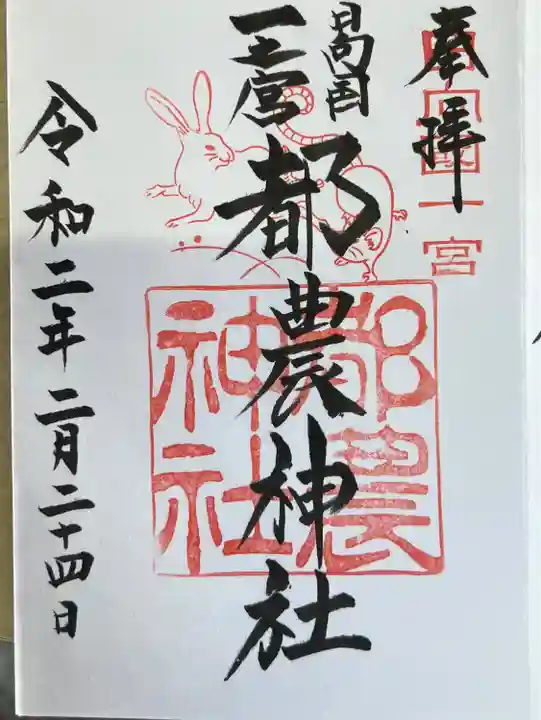 奉拝
日向国一宮
日向国
一之宮
都農神社
都農神社
令和二年二月二十四日